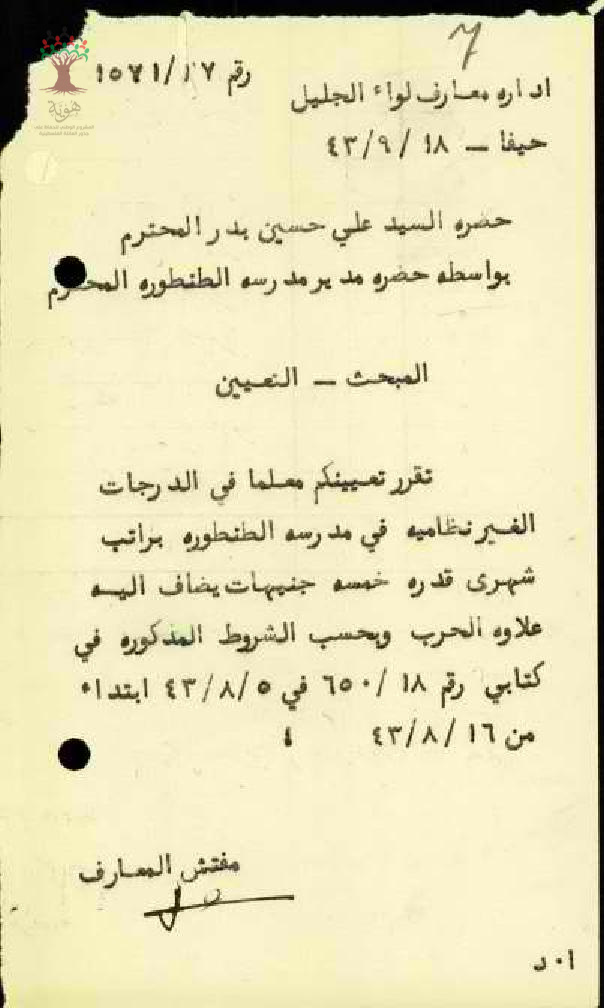 7
رقم ١٥٧١/١٧
اداره معارف لواء الجليل
حيفا – ٤٣/٩/١٨
حضره السيد علي حسين بدر المحترم
بواسطه حضره مدير مدرسه الطنطوره المحترم
المبحث – التعيين
تقرر تعيينكم معلما في الدرجات
الغير نظاميه في مدرسه الطنطوره براتب
شهرى قدره خمسه جنيهات يضاف اليه
علاوه الحرب وبحسب الشروط المذكوره في
كتابي رقم ٦٥٠/١٨ في ٤٣/٨/٥ ابتداء
من ٤٣/٨/١٦
مفتش المعارف
ا٠د
هوية